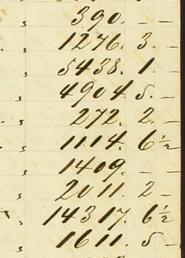 , 390. – –
, 1276. 3. –
, 5438. 1. –
, 4904. 5. –
, 272. 2. –
, 1114. 6½
, 1409. – –
, 2011. 2 –
, 14317. 6½
, 1611. 5 –